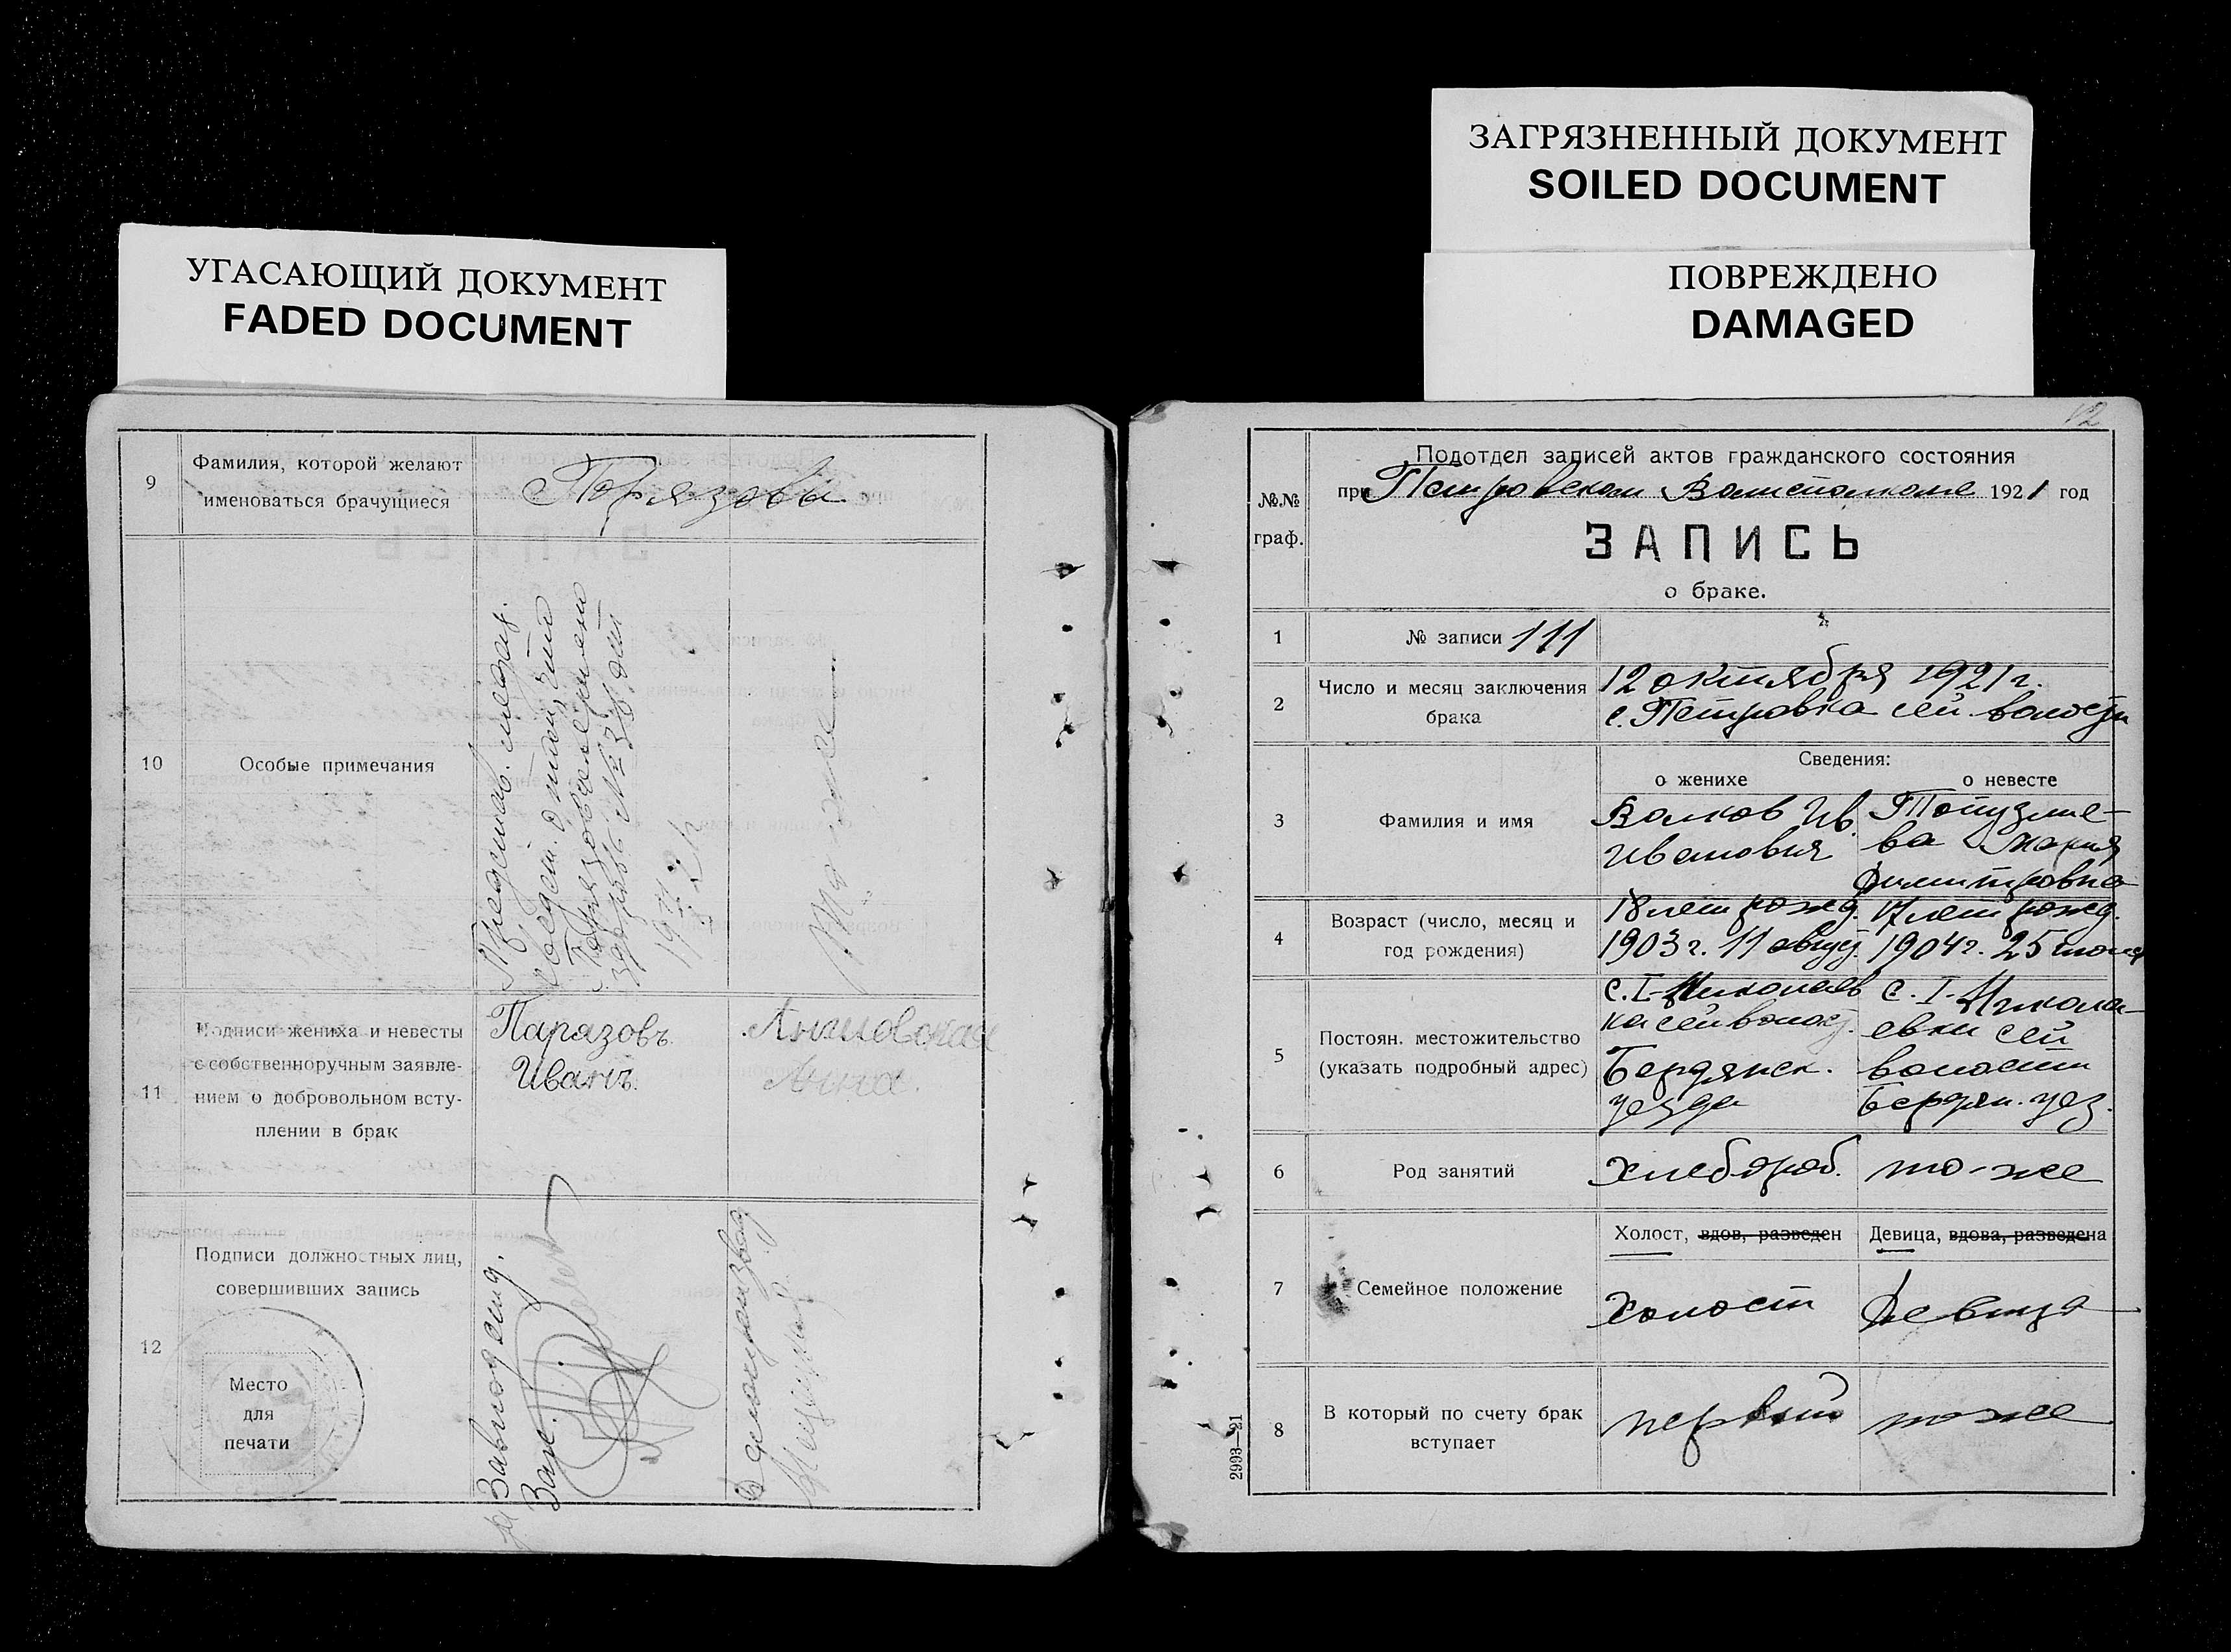 УГАСАЮЩИЙ ДОКУМЕНТ
FADED DOCUMENT
ЗАГРЯЗНЕННЫЙ ДОКУМЕНТ
SOILED DOCUMENT
ПОВРЕЖДЕНО
DAMAGED
9
Фамилия, которой желают
именоваться брачущиеся
Порязовы
10
Особые примечания
Представ. медиц.
свидет. о том, что
Порязов
здоровы №
то-же
11
Подписи жениха и невесты
с собственноручным заявле-
нием о добровольном всту-
плении в брак
Паразовъ
Иванъ
Анна
12
Подписи должностных лиц,
совершивших запись
Место
для
печати
Завподотд.
Делопроизвод
12
№№
граф.
Подотдел записей актов гражданского состояния
при Петровском Волисполкоме 1921 год
ЗАПИСЬ
о браке.
1
№ записи 111
2
Число и месяц заключения
брака
12 октября 1921 г.
с. Петровка сей волости
Сведения:
о женихе
о невесте
3
Фамилия и имя
Волков Ив.
Иванович
Топузлие-
ва Мария
Димитровна
4
Возраст (число, месяц и
год рождения)
18 лет рожд.
1903 г. 11 август.
17 лет рожд.
1904 г. 25 июня
5
Постоян. местожительство
(указать подробный адрес)
с. I-Николаев
ка сей волост.
Бердянск.
уезда
с. I-Никола-
евки сей
волости
Бердян. уез.
6
Род занятий
Хлебороб.
то-же
7
Семейное положение
Холост, вдов, разведен
Девица, вдова, разведена
Холост
Девица
8
В который по счету брак
вступает
первый
тоже
2993—21